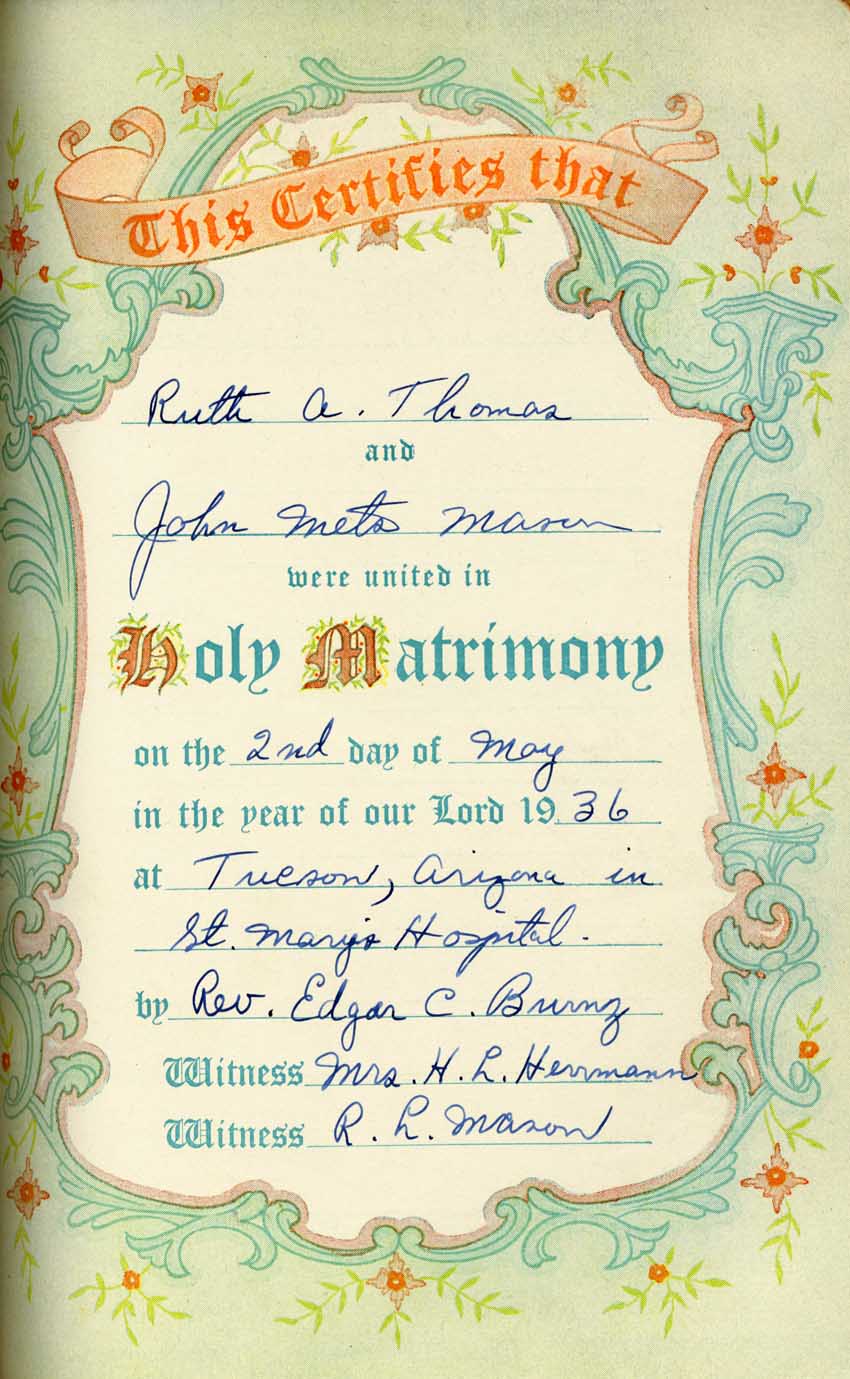 This Certifies that
Ruth A. Thomas
and
John Metz Mason
were united in
Holy Matrimony
on the 2nd day of May
in the year of our Lord 1936
at Tucson, Arizona in
St. Mary's Hospital.
by Rev. Edgar C. Burnz
Witness Mrs. H. L. Herrmann
Witness R. L. Mason